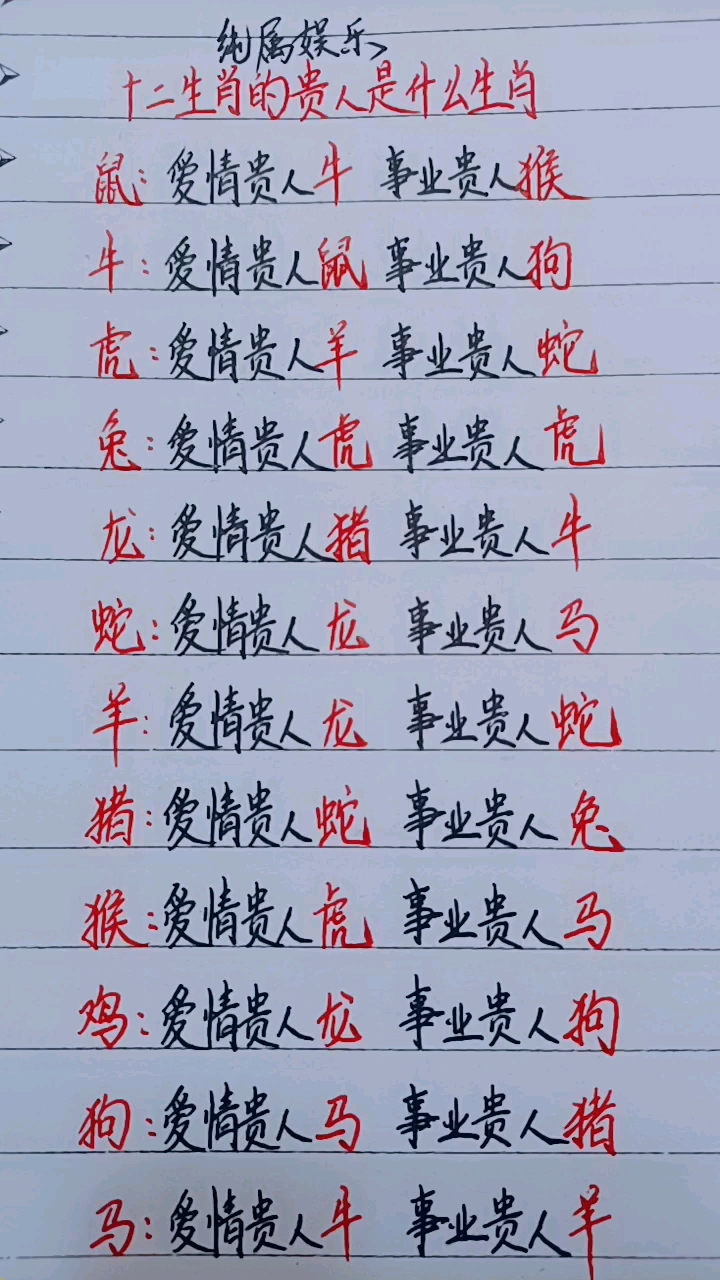 纯属娱乐
十二生肖的贵人是什么生肖
鼠：爱情贵人牛 事业贵人猴
牛：爱情贵人鼠 事业贵人狗
虎：爱情贵人羊 事业贵人蛇
兔：爱情贵人虎 事业贵人虎
龙：爱情贵人猪 事业贵人牛
蛇：爱情贵人龙 事业贵人马
羊：爱情贵人龙 事业贵人蛇
猪：爱情贵人蛇 事业贵人兔
猴：爱情贵人虎 事业贵人马
鸡：爱情贵人龙 事业贵人狗
狗：爱情贵人马 事业贵人猪
马：爱情贵人牛 事业贵人羊